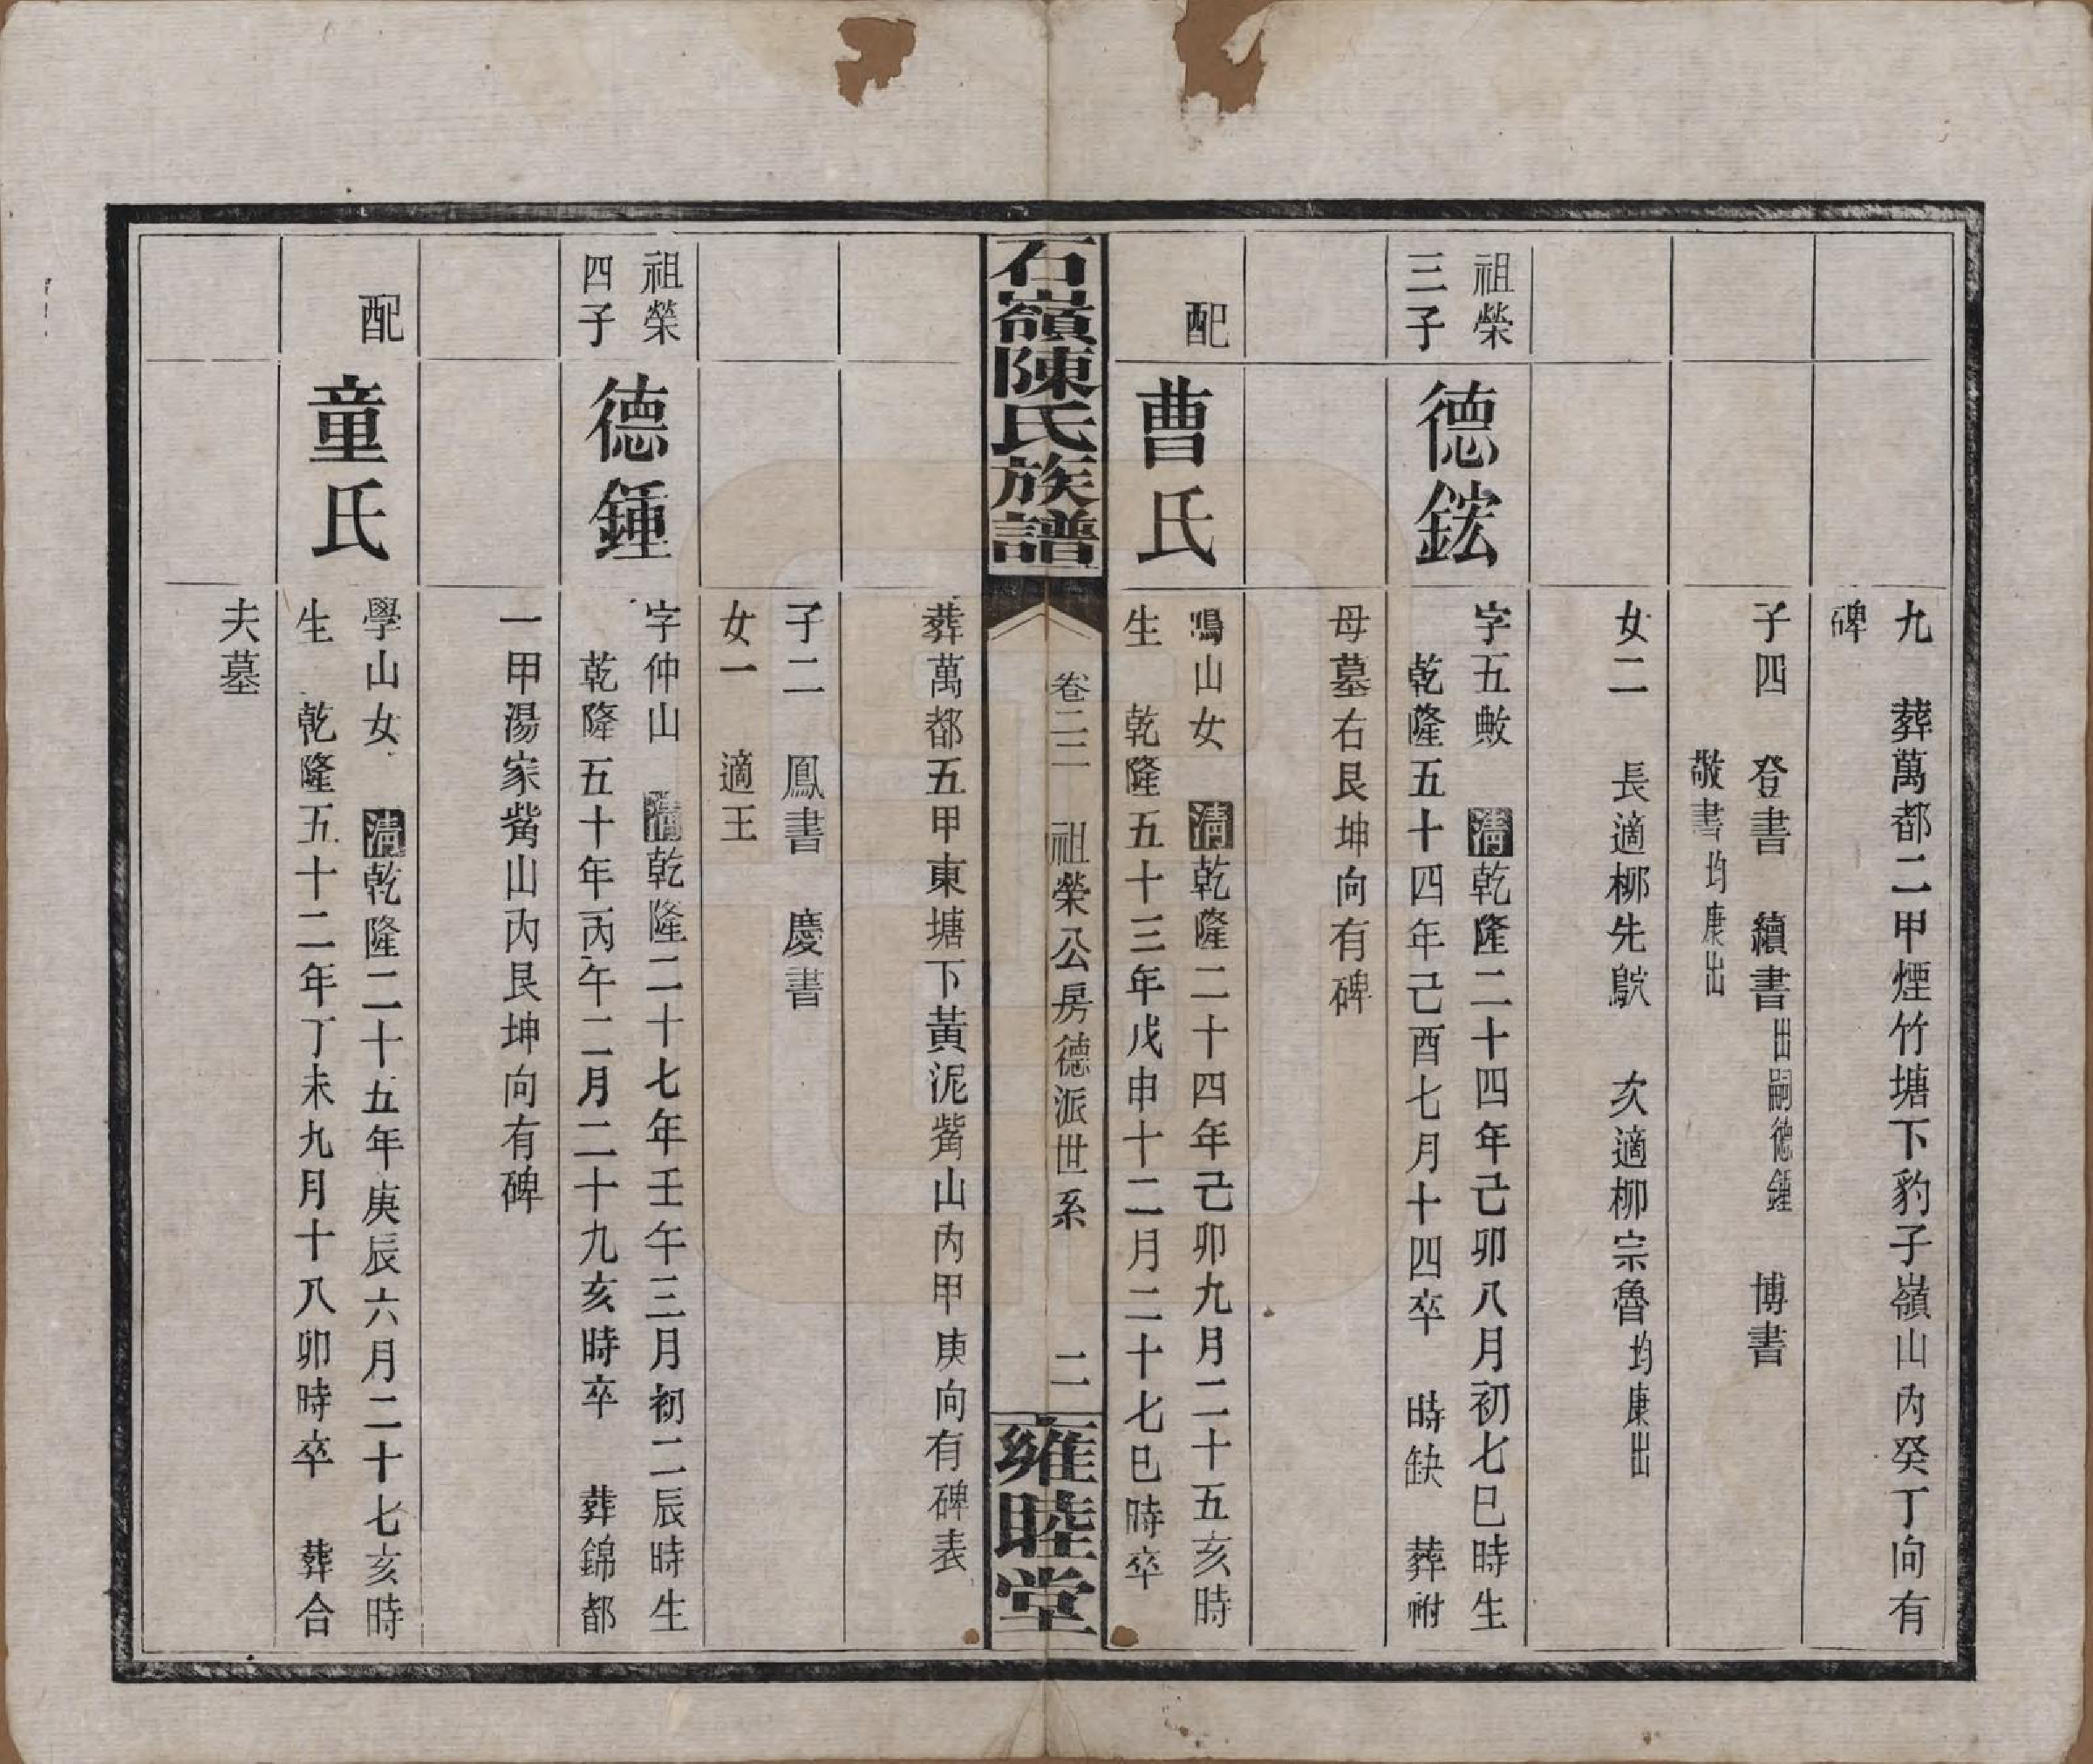 九　葬萬都二甲煙竹塘下豹子嶺山內癸丁向有
碑
子四　登書　續書出嗣德鍾　博書
敬書均康出
女二　長適柳先　次適柳宗魯均康出
祖榮
三子
德鋐
字五　清乾隆二十四年己卯八月初七巳時生
乾隆五十四年己酉七月十四卒　時缺　葬祔
母墓右艮坤向有碑
配
曹氏
鳴山女　清乾隆二十四年己卯九月二十五亥時
生　乾隆五十三年戊申十二月二十七巳時卒
石嶺陳氏族譜
卷二二　祖榮公房德派世系　二
雍睦堂
葬萬都五甲東塘下黃泥觜山內甲庚向有碑表
子二　鳳書　慶書
女一　適王
祖榮
四子
德鍾
字仲山　清乾隆二十七年壬午三月初二辰時生
乾隆五十年丙午二月二十九亥時卒　葬錦都
一甲湯家觜山內艮坤向有碑
配
童氏
學山女　清乾隆二十五年庚辰六月二十七亥時
生　乾隆五十二年丁未九月十八卯時卒　葬合
夫墓